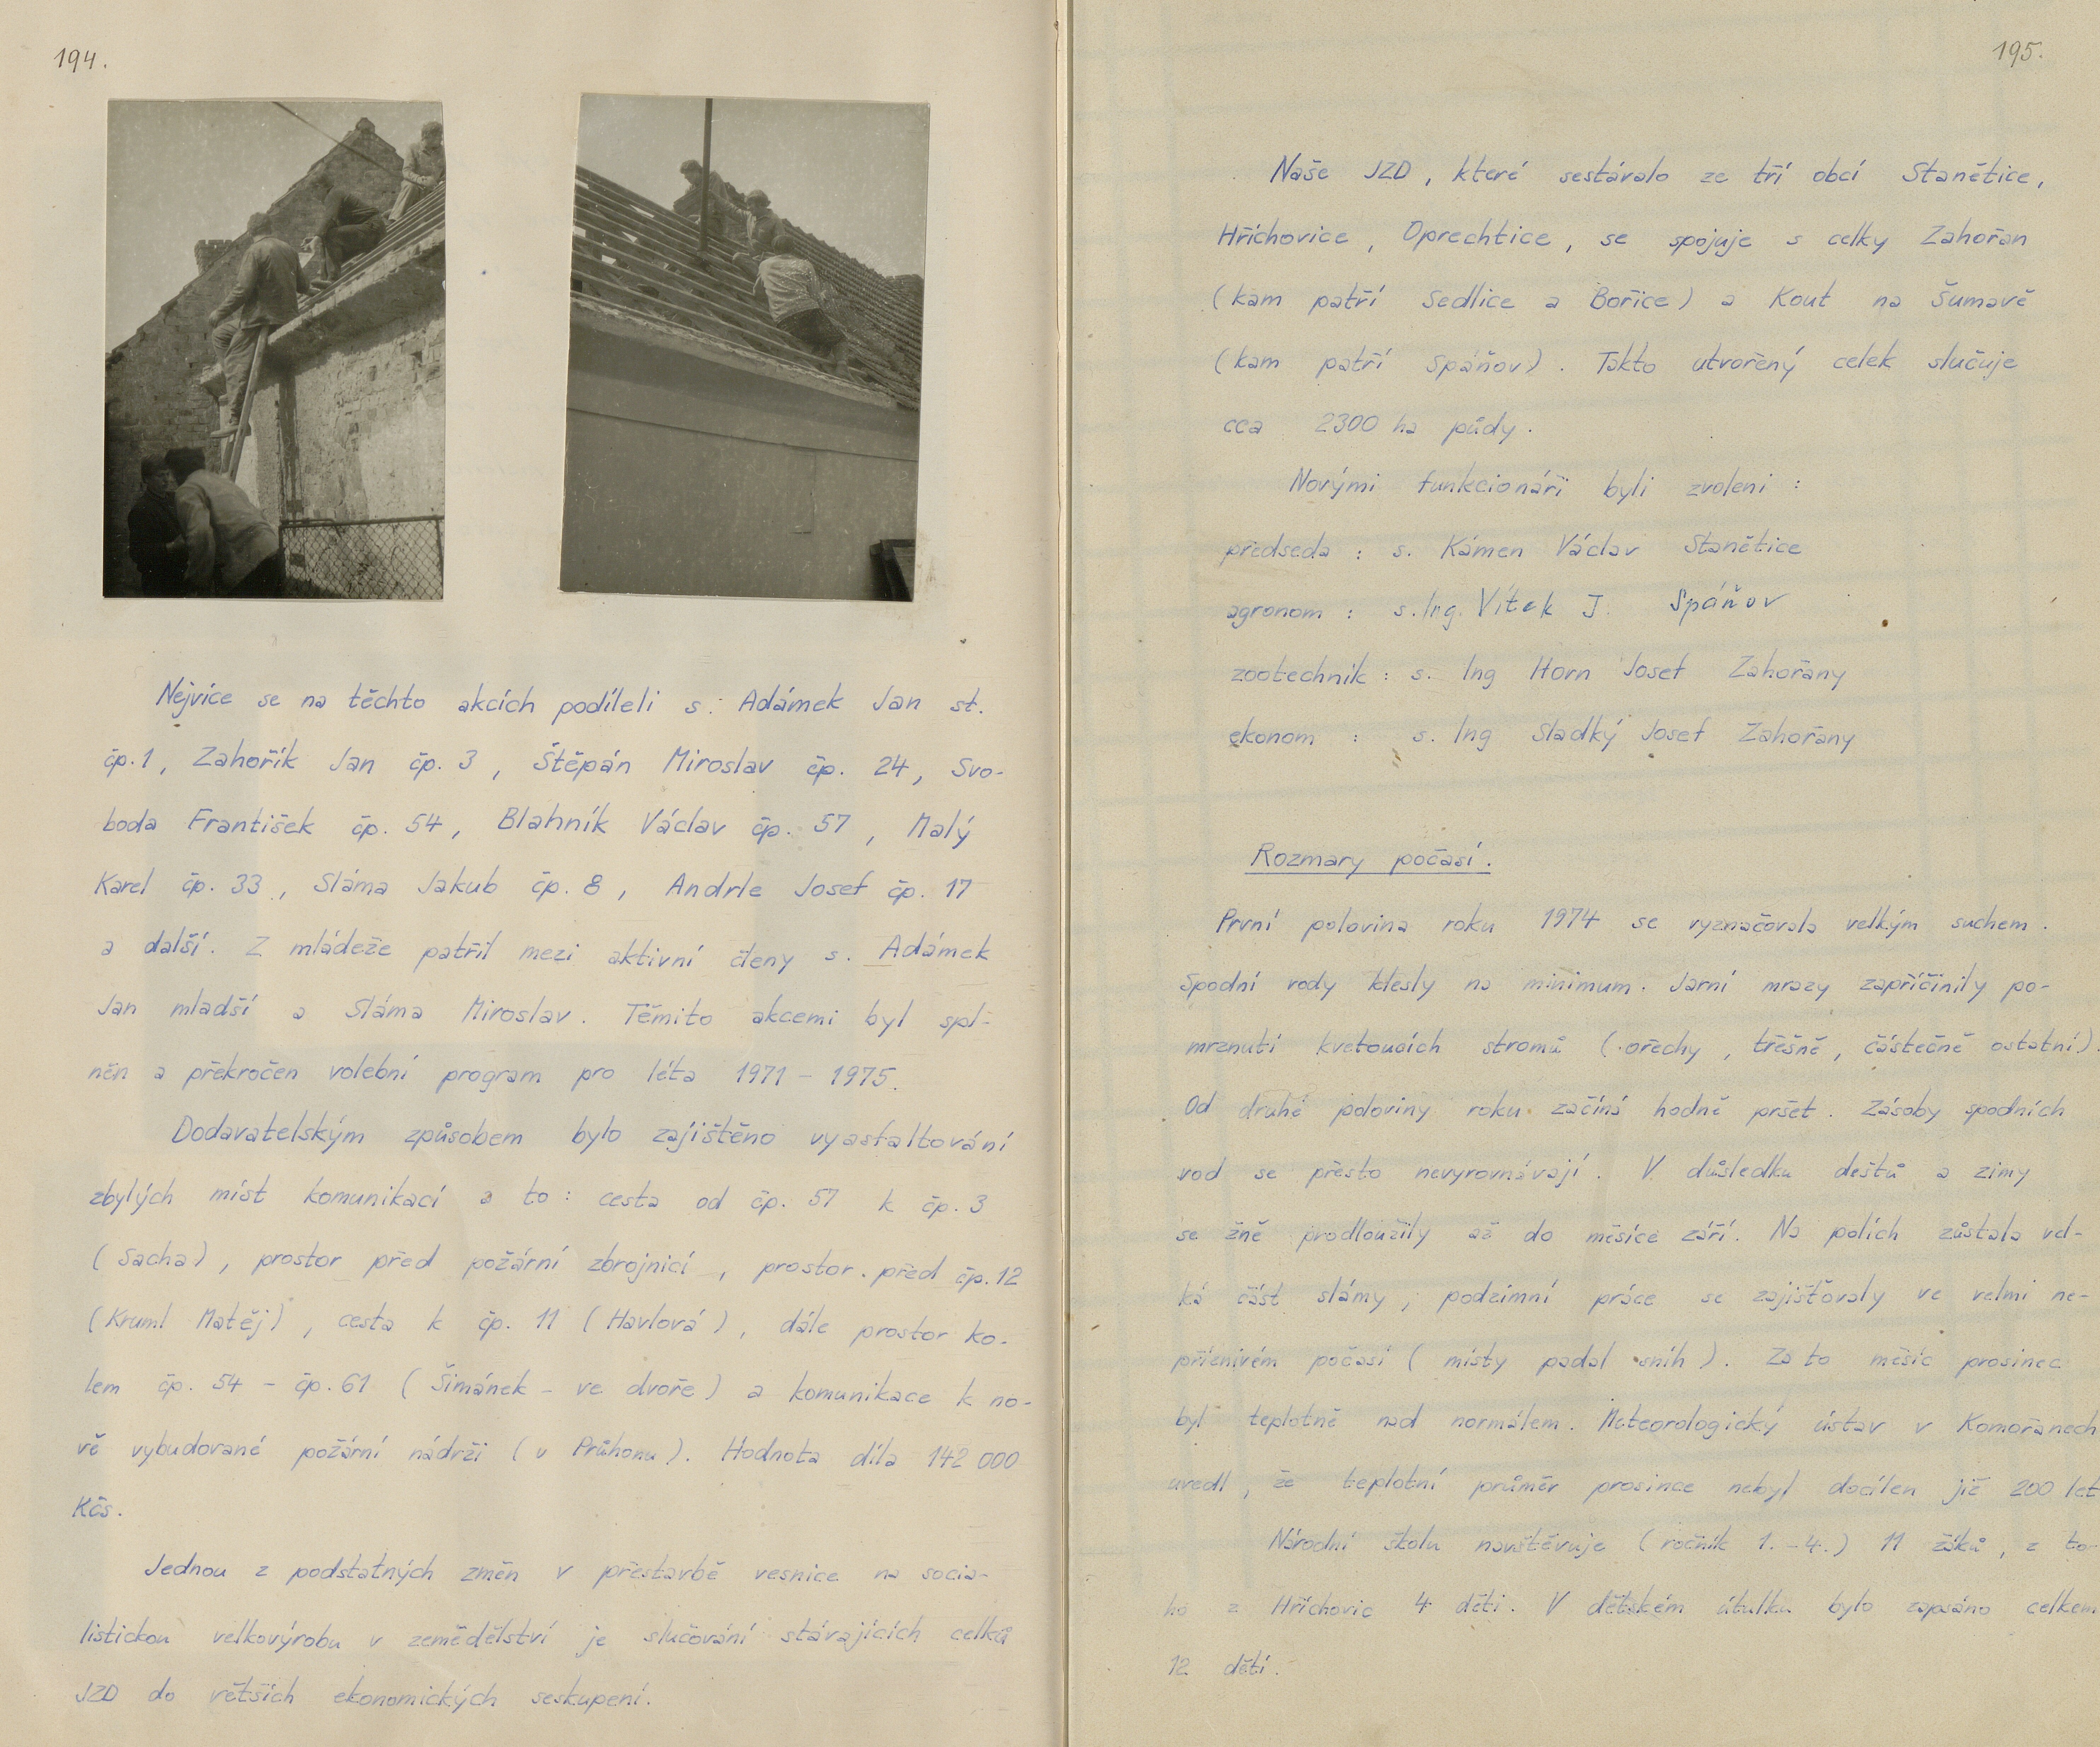 194.
Nejvíce se na těchto akcích podíleli s. Adámek Jan st.
čp. 1, Zahořík Jan čp. 3, Štěpán Miroslav čp. 24, Svo-
boda František čp. 54, Blahník Václav čp. 57, Malý
Karel čp. 33, Sláma Jakub čp. 8, Andrle Josef čp. 17
a další. Z mládeže patřil mezi aktivní členy s. Adámek
Jan mladší a Sláma Miroslav. Těmito akcemi byl spl-
něn a překročen volební program pro léta 1971 - 1975.
Dodavatelským způsobem bylo zajištěno vyasfaltování
zbylých míst komunikací a to: cesta od čp. 57 k čp. 3
(Sacha), prostor před požární zbrojnicí, prostor před čp. 12
(Kruml Matěj), cesta k čp. 11 (Havlová), dále prostor ko-
lem čp. 54 - čp. 61 (Šimánek - ve dvoře) a komunikace k no-
vě vybudované požární nádrži (v Průhonu). Hodnota díla 142 000
Kčs.
Jednou z podstatných změn v přestavbě vesnice na socia-
listickou velkovýrobu v zemědělství je slučování stávajících celků
JZD do větších ekonomických seskupení.
195.
Naše JZD, které sestávalo ze tří obcí Stanětice,
Hříchovice, Oprechtice, se spojuje s celky Zahořan
(kam patří Sedlice a Bořice) a Kout na Šumavě
(kam patří Spáňov). Takto utvořený celek slučuje
cca 2300 ha půdy.
Novými funkcionáři byli zvoleni:
předseda : s. Kámen Václav Stanětice
agronom : s. Ing. Vítek J. Spáňov
zootechnik : s. Ing Horn Josef Zahořany
ekonom : s. Ing Sladký Josef Zahořany
Rozmary počasí.
První polovina roku 1974 se vyznačovala velkým suchem.
Spodní vody klesly na minimum. Jarní mrazy zapříčinily po-
mrznutí kvetoucích stromů (ořechy, třešně, částečně ostatní).
Od druhé poloviny roku začíná hodně pršet. Zásoby spodních
vod se přesto nevyrovnávají. V důsledku deštů a zimy
se žně prodloužily až do měsíce září. Na polích zůstala vel-
ká část slámy, podzimní práce se zajišťovaly ve velmi ne-
příznivém počasí (místy padal sníh). Za to měsíc prosinec
byl teplotně nad normálem. Meteorologický ústav v Komořanech
uvedl, že teplotní průměr prosince nebyl docílen již 200 let
Národní školu navštěvuje (ročník 1.-4.) 11 žáků, z to-
ho z Hříchovic 4 děti. V dětském útulku bylo zapsáno celkem
12 dětí.